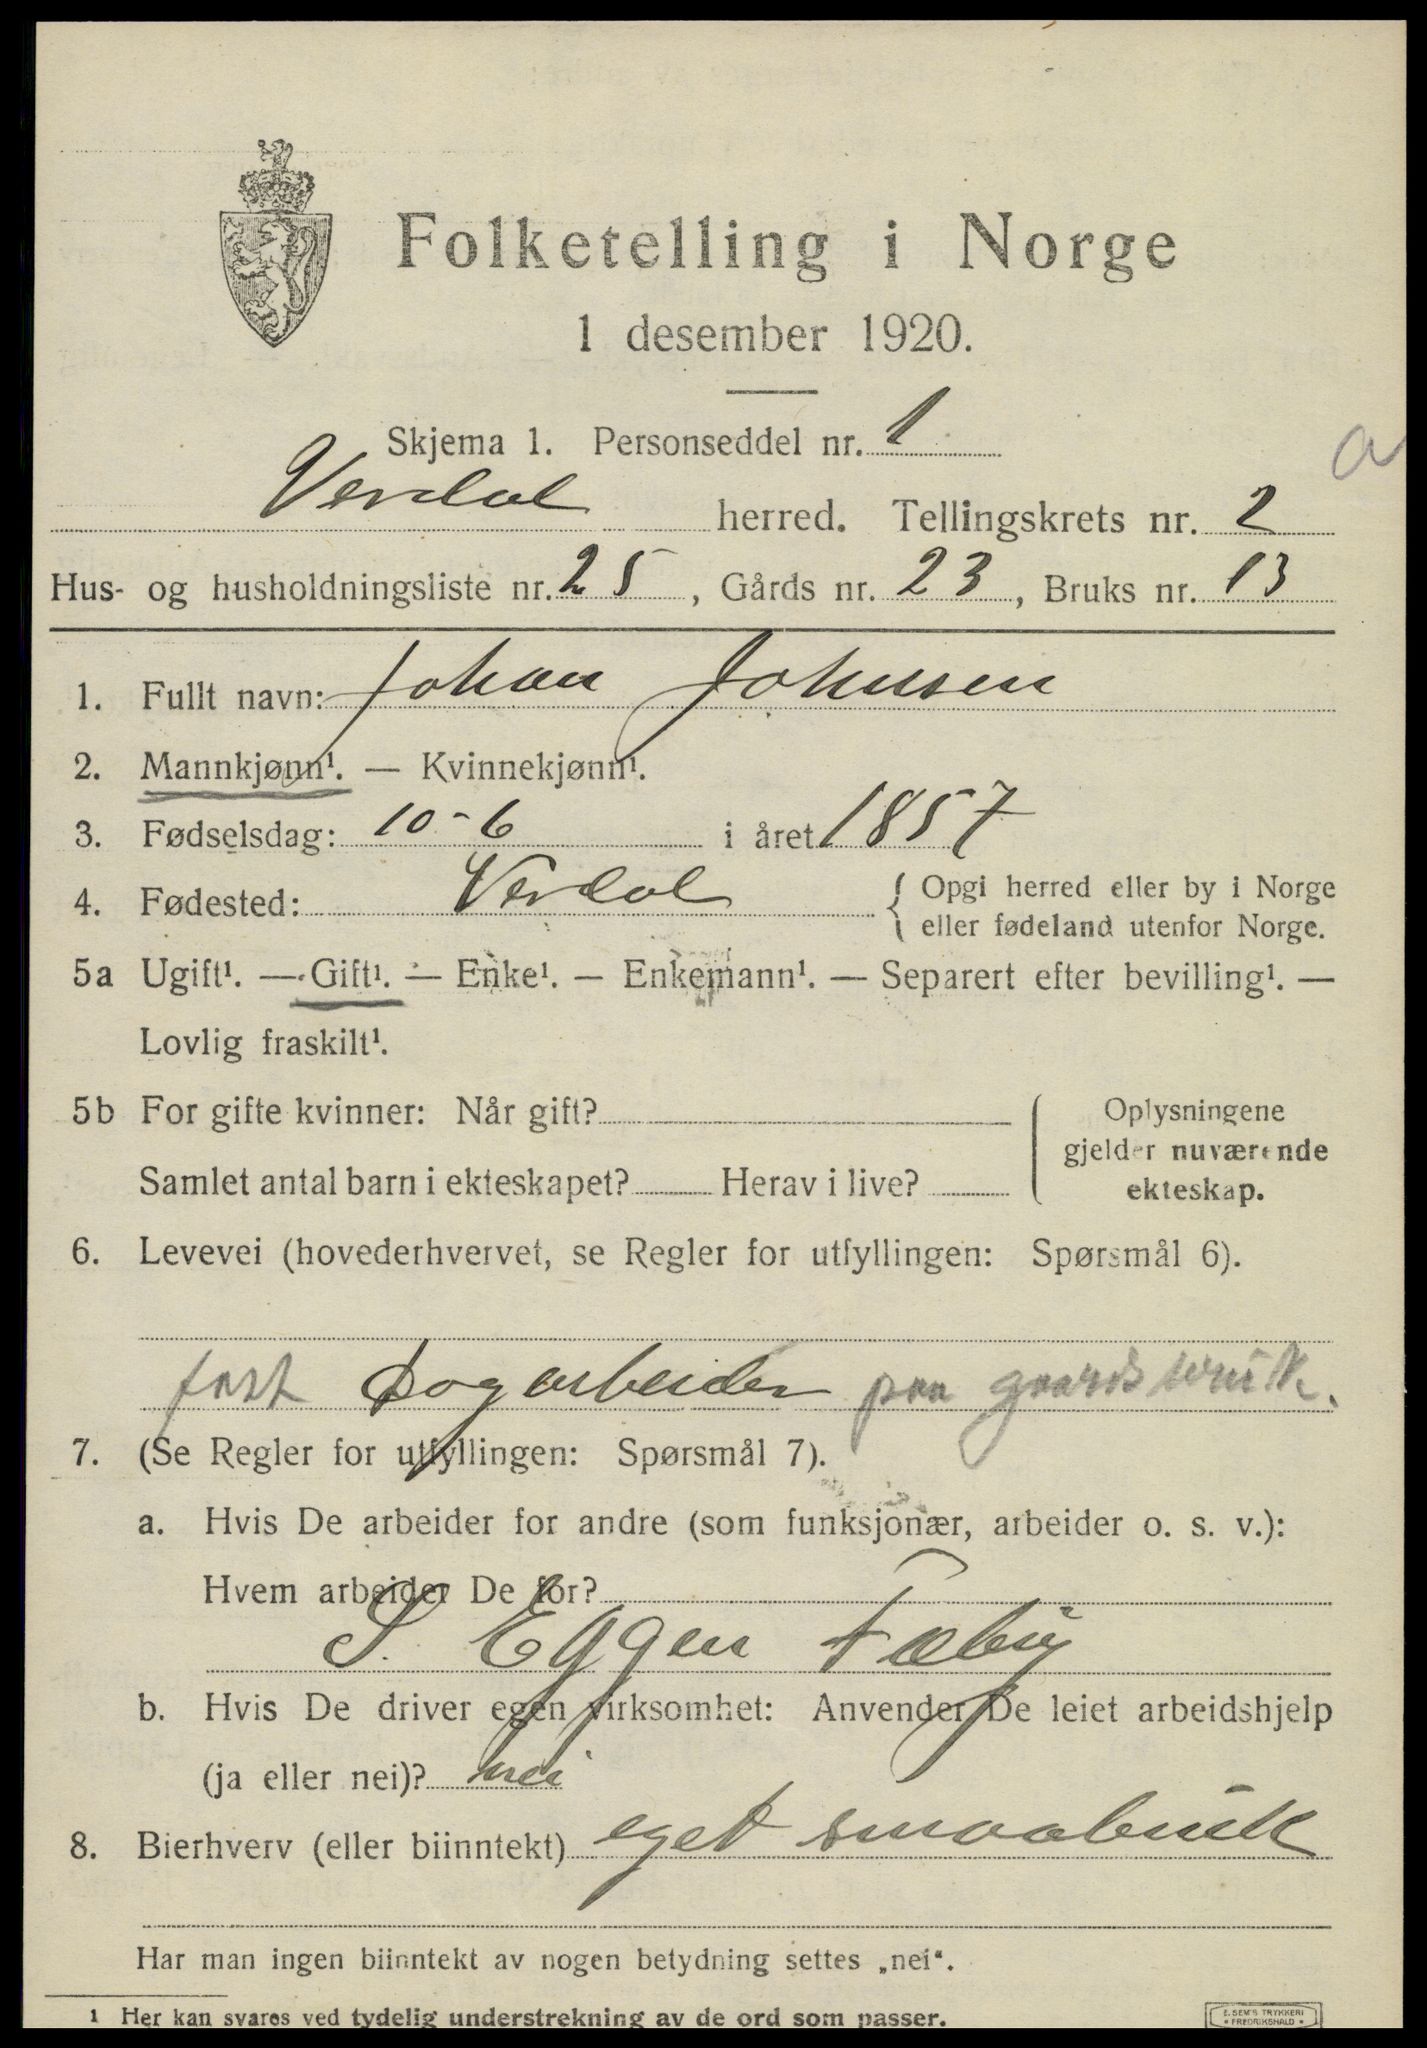 Folketelling i Norge
1 desember 1920.
Skjema 1. Personseddel nr. 1
a
Verdal herred. Tellingskrets nr. 2
Hus- og husholdningsliste nr. 25, Gårds nr. 23, Bruks nr. 13
1. Fullt navn: Johan Johnsen
2. Mannkjønn¹. — Kvinnekjønn¹.
3. Fødselsdag: 10-6 i året 1857
4. Fødested: Verdal { Opgi herred eller by i Norge
eller fødeland utenfor Norge.
5a Ugift¹. — Gift¹. — Enke¹. — Enkemann¹. — Separert efter bevilling¹. —
Lovlig fraskilt¹.
5b For gifte kvinner: Når gift?
Samlet antal barn i ekteskapet? Herav i live?
Oplysningene
gjelder nuværende
ekteskap.
6. Levevei (hovederhvervet, se Regler for utfyllingen: Spørsmål 6).
fast Dagarbeider paa gaardsbruk.
7. (Se Regler for utfyllingen: Spørsmål 7).
a. Hvis De arbeider for andre (som funksjonær, arbeider o. s. v.):
Hvem arbeider De for?
S. Eggen Fæby
b. Hvis De driver egen virksomhet: Anvender De leiet arbeidshjelp
(ja eller nei)? nei
8. Bierhverv (eller biinntekt) eget smaabruk
Har man ingen biinntekt av nogen betydning settes „nei“.
1 Her kan svares ved tydelig understrekning av de ord som passer.
E. SEM'S TRYKKERI
FREDRIKSHALD